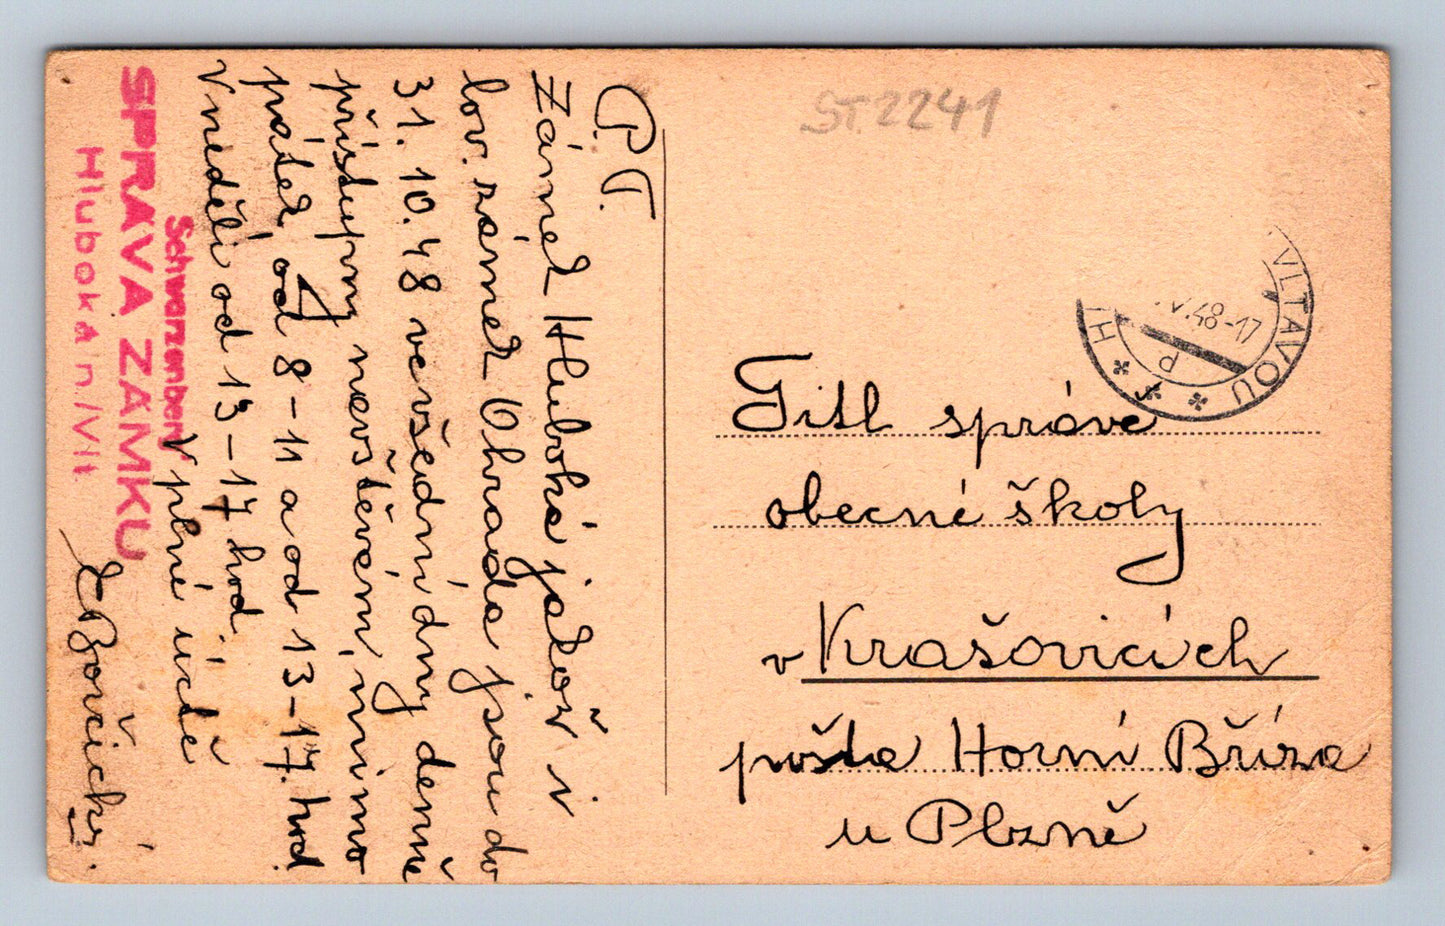 P.T.
Zámek Hluboká jakož i
lov. zámek Ohrada jsou do
31. 10. 48 ve všední dny denně
přístupny návštěvám, mimo
pátek od 8-11 a od 13-17. hod
V neděli od 13-17 hod.
V plné úctě
Schwarzenberg
SPRÁVA ZÁMKU
Hluboká n./Vlt.
ST. 2241
VLTAVOU
V.48-17
Titl správě
obecné školy
v Krašovicích
pošta Horní Bříza
u Plzně